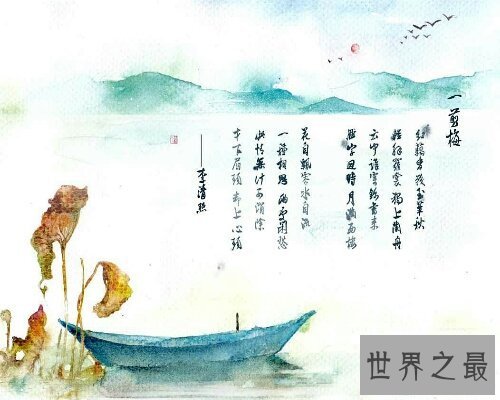 一剪梅
红藕香残玉簟秋
轻解罗裳独上兰舟
云中谁寄锦书来
雁字回时月满西楼
花自飘零水自流
一种相思两处闲愁
此情無计可消除
才下眉头却上心头
——李清照
世界之最